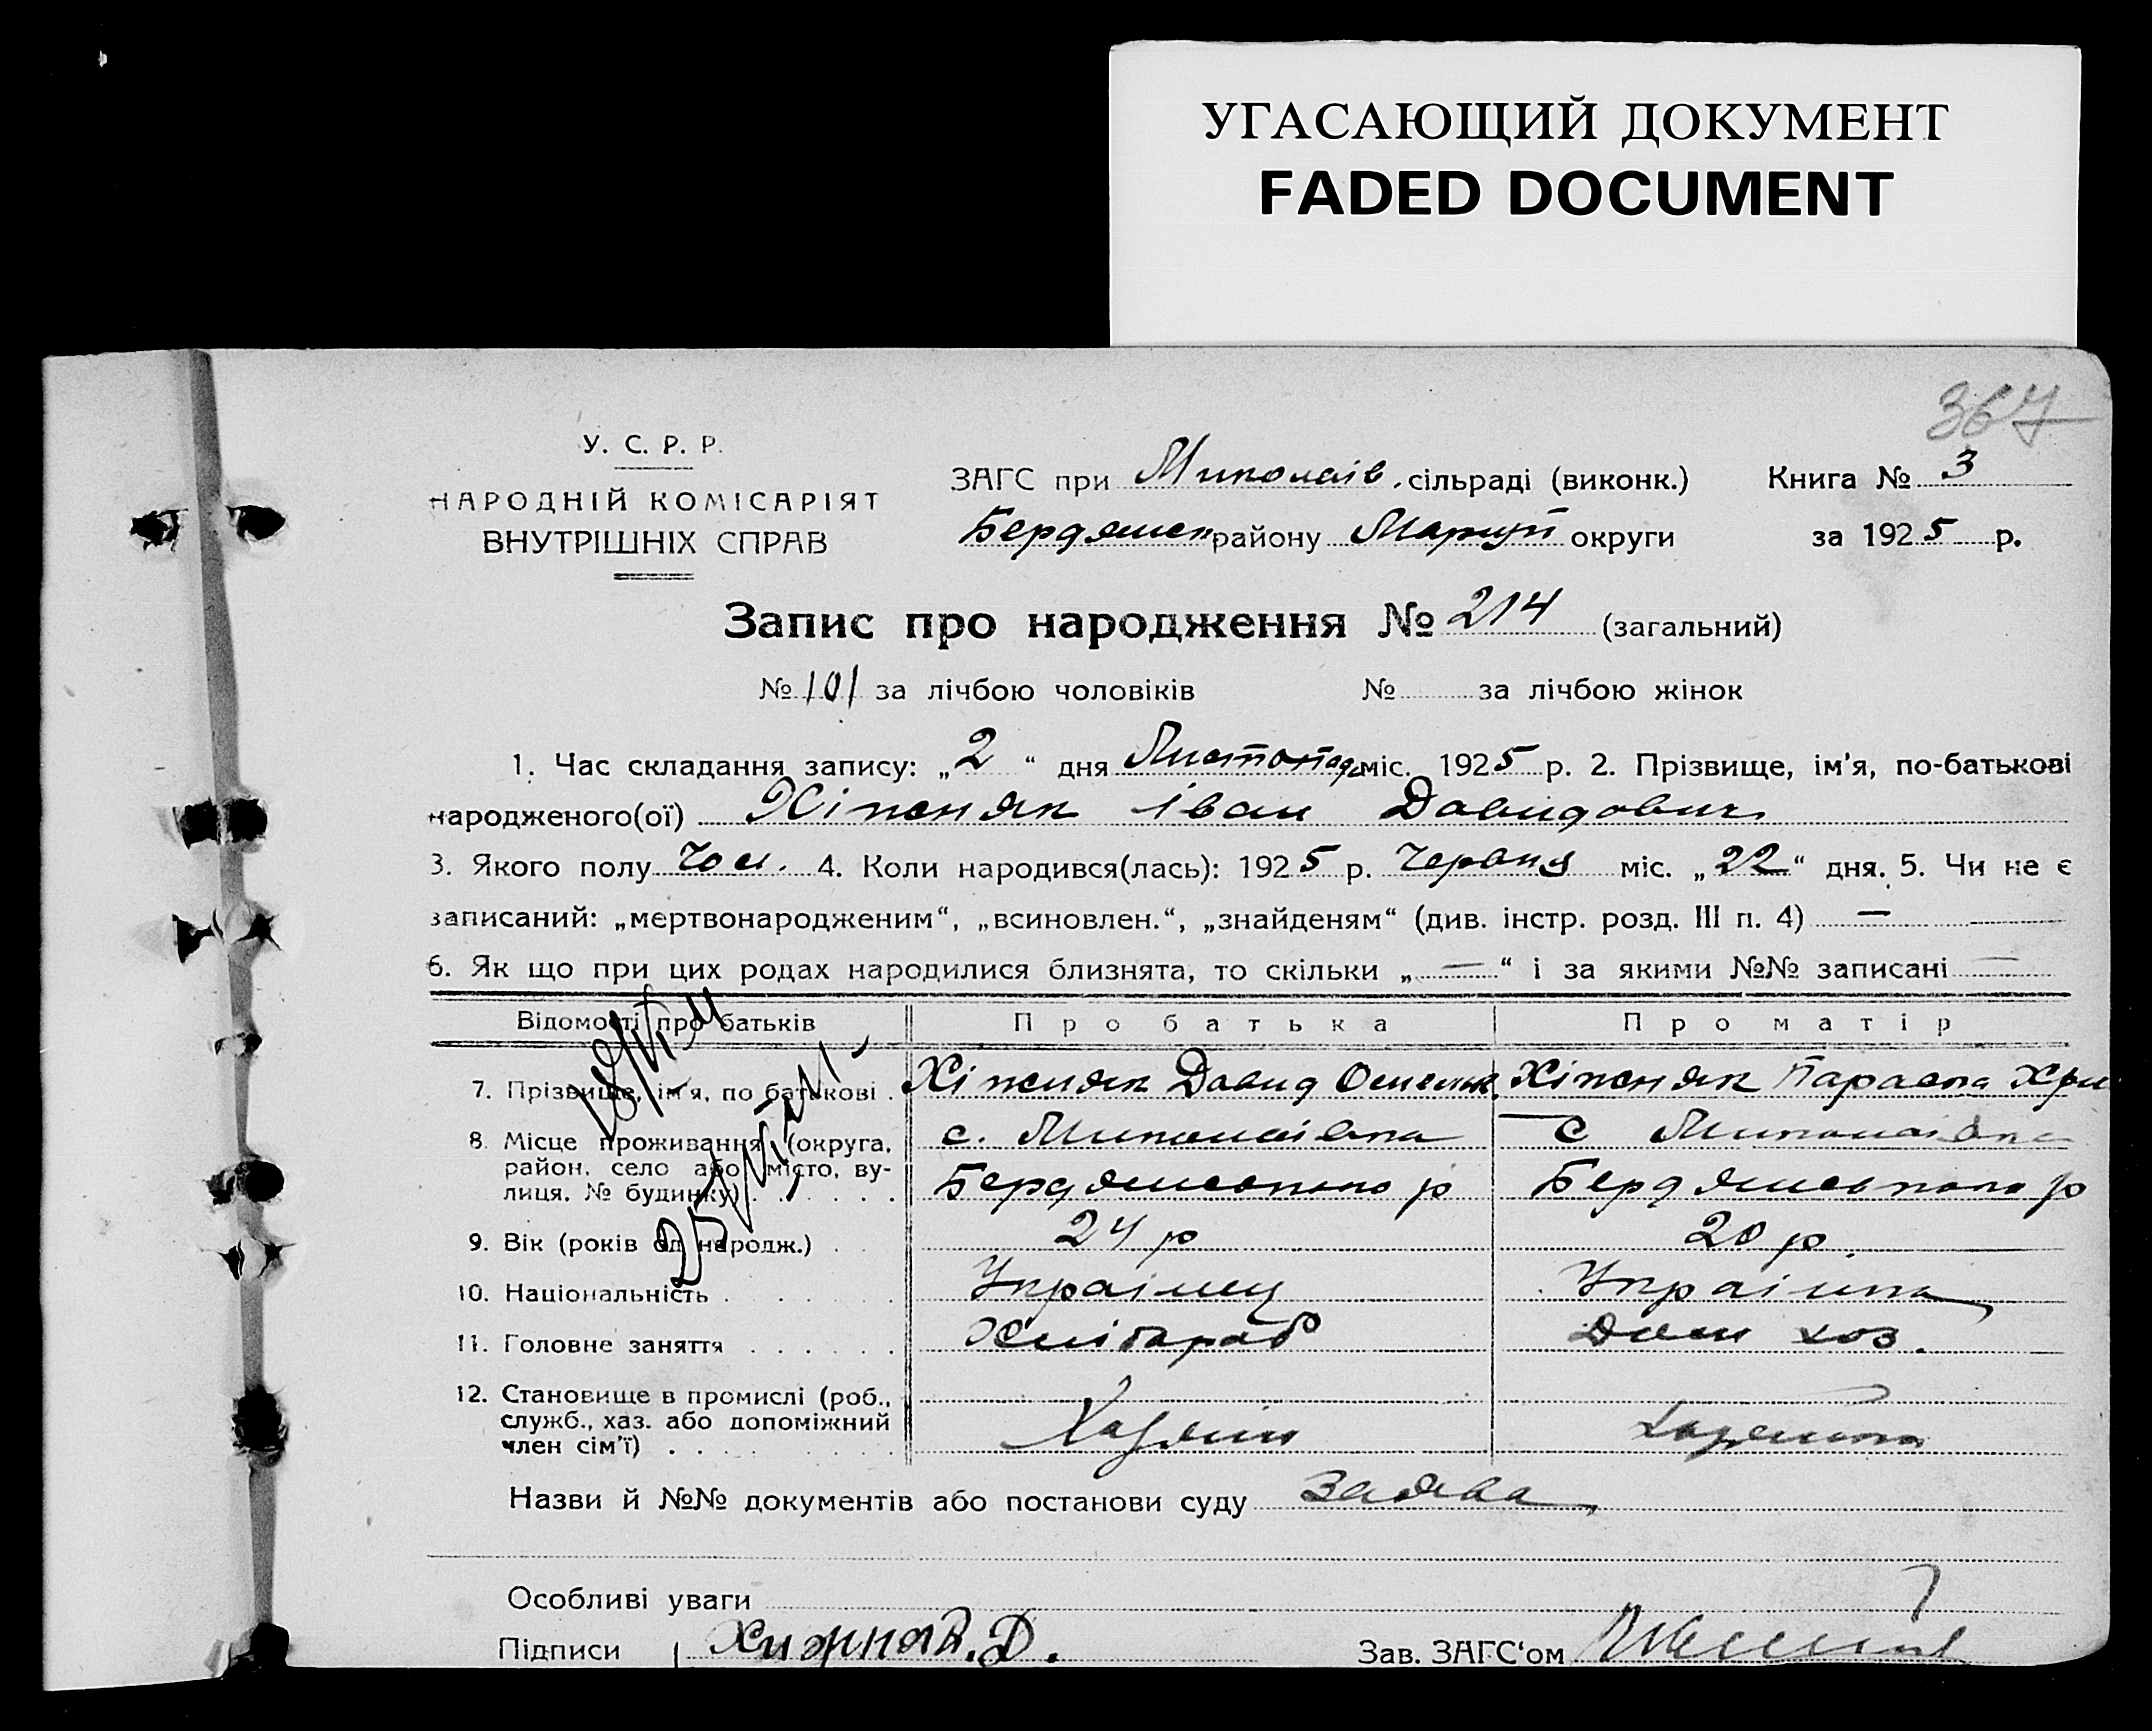 УГАСАЮЩИЙ ДОКУМЕНТ
FADED DOCUMENT
367
У. С. Р. Р.
НАРОДНІЙ КОМІСАРІЯТ
ВНУТРІШНІХ СПРАВ
ЗАГС при Миколаів. сільраді (виконк.) Книга № 3
Бердянськ району Маріуп округи за 1925 р.
Запис про народження № 214 (загальний)
№ 101 за лічбою чоловіків № за лічбою жінок
1. Час складання запису: „2“ дня Листопада міс. 1925 р. 2. Прізвище, ім'я, по-батькові
народженого(ої) Хіжняк Іван Давидович
3. Якого полу Чол. 4. Коли народився(лась): 1925 р. Червня міс. „22“ дня. 5. Чи не є
записаний: „мертвонародженим“, „всиновлен.“, „знайденям“ (див. інстр. розд. III п. 4) —
6. Як що при цих родах народилися близнята, то скільки „—“ і за якими №№ записані —
Відомості про батьків Про батька Про матір
7. Прізвище, ім'я, по батькові . Хіжняк Давид Хіжняк Параска Хри
8. Місце проживання (округа, с. Миколаівка с Миколаівка
район, село або місто, ву-
лиця, № будинку) Бердянського р Бердянського р
9. Вік (років од народж.) 24 р 20 р.
10. Національність Украінец Украінка
11. Головне заняття Хлібороб Дом хоз.
12. Становище в промислі (роб.,
служб., хаз. або допоміжний
член сім'ї) Хазяін Хазяйка
Назви й №№ документів або постанови суду Заява
Особливі уваги
Підписи Хижняк. Д. Зав. ЗАГС'ом